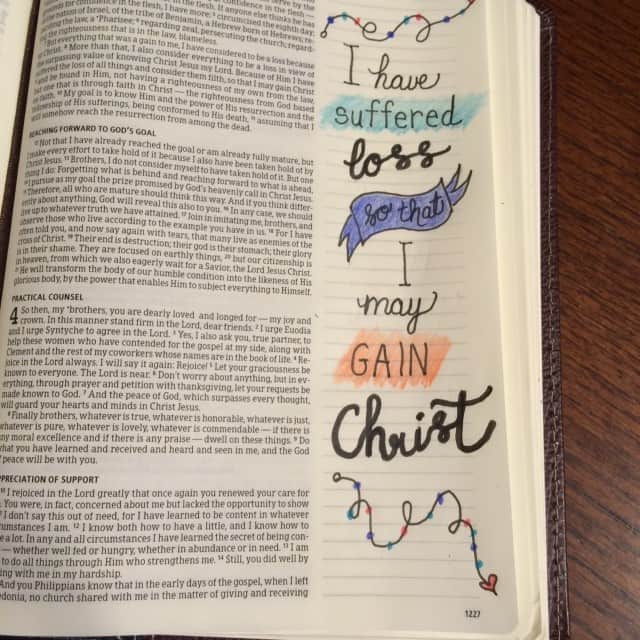 confidence in the flesh —
confidence in the flesh, I have more: ⁵ circumcised the eighth day;
of Israel, of the tribe of Benjamin, a Hebrew born of Hebrews; re-
the law, a Pharisee; ⁶ regarding zeal, persecuting the church; regard-
the righteousness that is in the law, blameless.
But everything that was a gain to me, I have considered to be a loss because
Christ. ⁸ More than that, I also consider everything to be a loss in view of
surpassing value of knowing Christ Jesus my Lord. Because of Him I have
suffered the loss of all things and consider them filth, so that I may gain Christ
and be found in Him, not having a righteousness of my own from the law,
but one that is through faith in Christ — the righteousness from God based
on faith. ¹⁰ My goal is to know Him and the power of His resurrection and the
fellowship of His sufferings, being conformed to His death, ¹¹ assuming that I
will somehow reach the resurrection from among the dead.
REACHING FORWARD TO GOD'S GOAL
¹² Not that I have already reached the goal or am already fully mature, but
I make every effort to take hold of it because I also have been taken hold of by
Christ Jesus. ¹³ Brothers, I do not consider myself to have taken hold of it. But one
thing I do: Forgetting what is behind and reaching forward to what is ahead,
I pursue as my goal the prize promised by God's heavenly call in Christ Jesus.
Therefore, all who are mature should think this way. And if you think differ-
ently about anything, God will reveal this also to you. ¹⁶ In any case, we should
live up to whatever truth we have attained. ¹⁷ Join in imitating me, brothers, and
observe those who live according to the example you have in us. ¹⁸ For I have
often told you, and now say again with tears, that many live as enemies of the
cross of Christ. ¹⁹ Their end is destruction; their god is their stomach; their glory
is in their shame. They are focused on earthly things, ²⁰ but our citizenship is
in heaven, from which we also eagerly wait for a Savior, the Lord Jesus Christ.
²¹ He will transform the body of our humble condition into the likeness of His
glorious body, by the power that enables Him to subject everything to Himself.
PRACTICAL COUNSEL
4 So then, my brothers, you are dearly loved and longed for — my joy and
crown. In this manner stand firm in the Lord, dear friends. ² I urge Euodia
and I urge Syntyche to agree in the Lord. ³ Yes, I also ask you, true partner, to
help these women who have contended for the gospel at my side, along with
Clement and the rest of my coworkers whose names are in the book of life. ⁴ Re-
joice in the Lord always. I will say it again: Rejoice! ⁵ Let your graciousness be
known to everyone. The Lord is near. ⁶ Don't worry about anything, but in ev-
erything, through prayer and petition with thanksgiving, let your requests be
made known to God. ⁷ And the peace of God, which surpasses every thought,
will guard your hearts and minds in Christ Jesus.
⁸ Finally brothers, whatever is true, whatever is honorable, whatever is just,
whatever is pure, whatever is lovely, whatever is commendable — if there is
any moral excellence and if there is any praise — dwell on these things. ⁹ Do
what you have learned and received and heard and seen in me, and the God
of peace will be with you.
APPRECIATION OF SUPPORT
¹⁰ I rejoiced in the Lord greatly that once again you renewed your care for
You were, in fact, concerned about me but lacked the opportunity to show
I don't say this out of need, for I have learned to be content in whatever
circumstances I am. ¹² I know both how to have a little, and I know how to
have a lot. In any and all circumstances I have learned the secret of being con-
— whether well fed or hungry, whether in abundance or in need. ¹³ I am
to do all things through Him who strengthens me. ¹⁴ Still, you did well by
ing with me in my hardship.
And you Philippians know that in the early days of the gospel, when I left
donia, no church shared with me in the matter of giving and receiving
I have
suffered
loss
so that
I
may
GAIN
Christ
1227